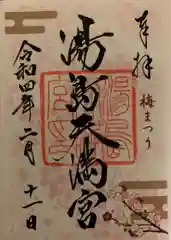 奉拝
梅まつり
湯島天満宮
令和四年二月
十一日